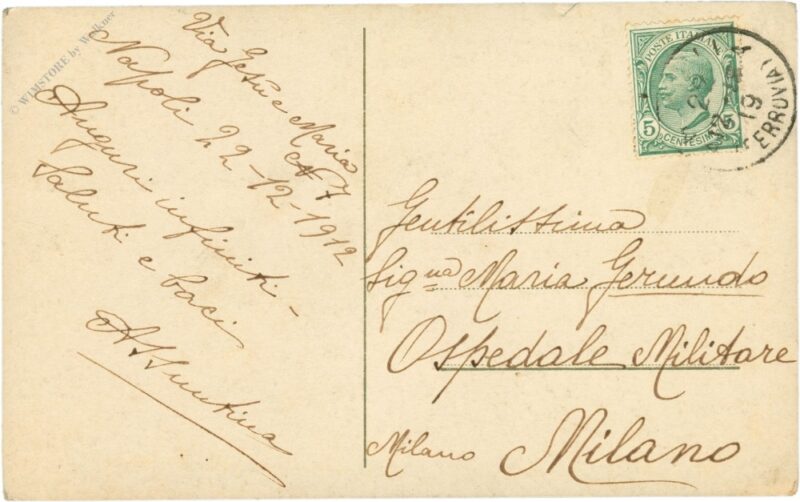 © WIMSTORE by Walkner
Via Gesù e Maria
N 7
Napoli 22-12-1912
Auguri infiniti -
Saluti e baci
Assuntina
POSTE ITALIANE
5 CENTESIMI 5
22
19
(FERROVIA)
Gentilissima
Sig.na Maria Gerundo
Ospedale Militare
Milano Milano